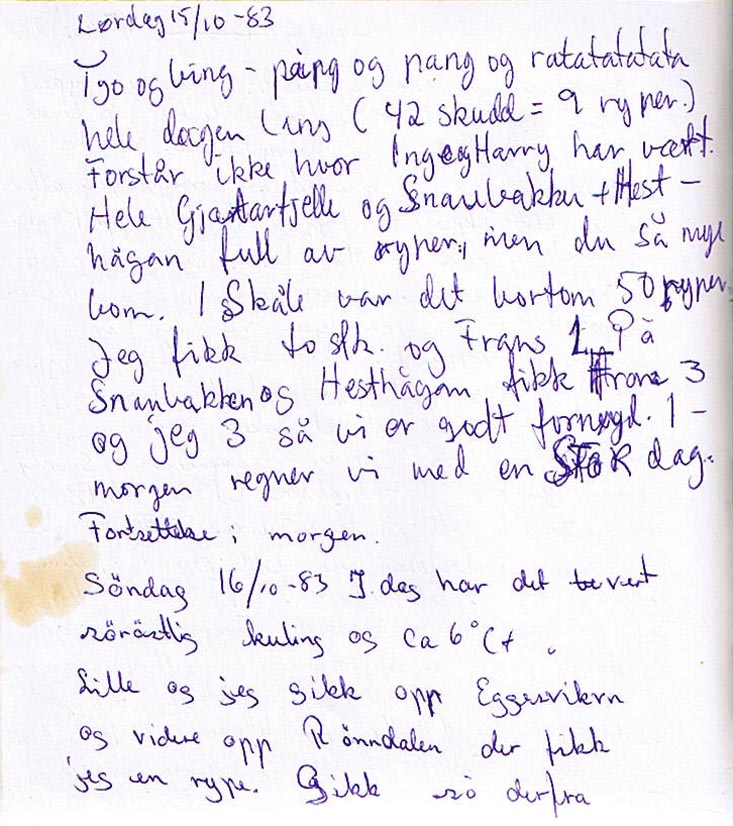 Lørdag 15/10-83
og bing - pang og pang og ratatatatata
hele dagen lang (42 skudd = 9 ryper.)
Forstår ikke hvor Inge og Harry har vært.
Hele og Snaubakken + Hest-
hågan full av ryper, men du så mye
kom. I Skåle var det bortom 50 ryper.
Jeg fikk to stk. og Frans 1. På
Snaubakken og Hesthågan fikk 3
og jeg 3 så vi er godt fornøgd. I-
morgen regner vi med en STOR dag.
Fortsettelse i morgen.
Søndag 16/10-83 I dag har det vert
sörästlig kuling og ca 6°C+.
Lille og jeg gikk opp Eggesvikrn
og videre opp Rönndalen der fikk
jeg en rype. Gikk så derfra